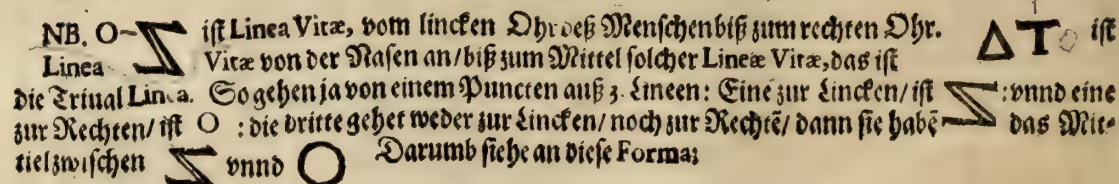 NB. O-Z ist Linea Vitæ, vom lincken Ohr deß Menschen biß zum rechten Ohr. ΔT ist
Linea Vitæ von der Nasen an/biß zum Mittel solcher Lineæ Vitæ, das ist
die Triual Linea. So gehen ja von einem Puncten auß 3. Lineen: Eine zur Lincken/ ist Z :vnnd eine
zur Rechten/ ist O : die dritte gehet weder zur Lincken/ noch zur Rechtē/ dann sie habē das Mit-
tiel zwischen Z vnnd O Darumb siehe an diese Forma: